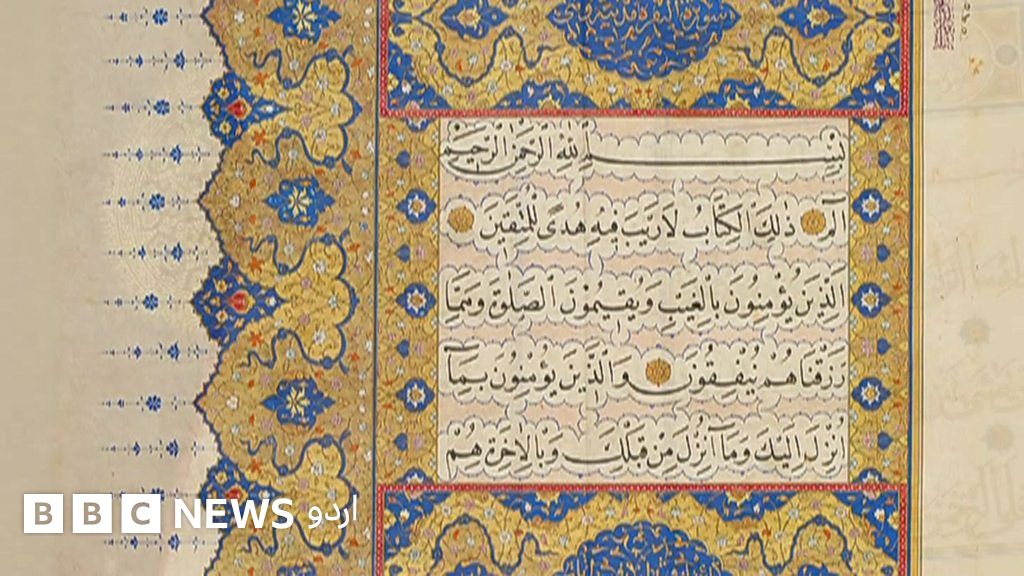 بِسْمِ ٱللَّهِ ٱلرَّحْمَٰنِ ٱلرَّحِيمِ
الٓمٓ ذٰلِكَ الْكِتَابُ لَا رَيْبَ فِيهِ هُدًى لِلْمُتَّقِينَ
الَّذِينَ يُؤْمِنُونَ بِالْغَيْبِ وَيُقِيمُونَ الصَّلٰوةَ وَمِمَّا
رَزَقْنَاهُمْ يُنْفِقُونَ وَالَّذِينَ يُؤْمِنُونَ بِمَآ
اُنْزِلَ اِلَيْكَ وَمَآ اُنْزِلَ مِنْ قَبْلِكَ وَبِالْاٰخِرَةِ هُمْ
BBC NEWS اردو